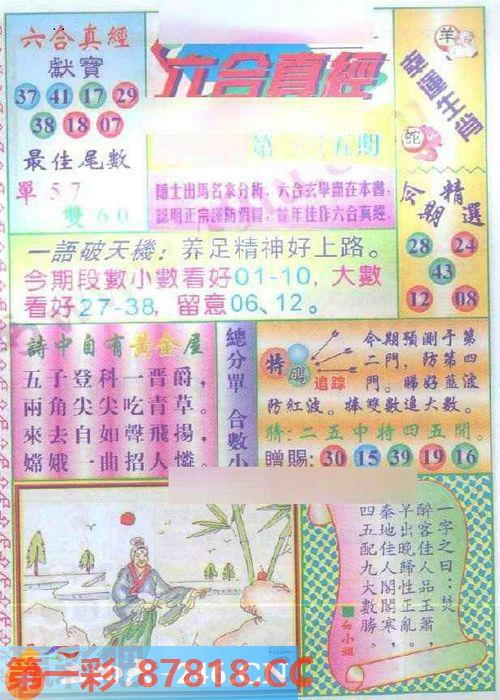 六合真經
獻寶
37 41 17 29
38 18 07
最佳尾數
單 5 7
雙 6 0
六合真經
第 五期
隱士出馬名家分析，六合玄學盡在本書，
認明正宗謹防假冒，益年佳作六合真經。
羊
幸運生肖
蛇
今期精選
28 24
43
12 08
一語破天機：养足精神好上路。
今期段數小數看好01-10, 大數
看好27-38, 留意06、12。
詩中自有黄金屋
五子登科一晋爵，
兩角尖尖吃青草。
來去自如聲飛揚，
嫦娥一曲招人憐。
總分單
合數小
特碼
追踪
今期預測于第
二門，防第四
門。睇好藍波
防紅波。捧雙數追大數。
猜:二五中特四五開。
贈賜: 30 15 39 19 16
一字之曰：焚
醉客佳人品玉蕭，
早出晚歸性正亂。
泰地佳人閣閣寒，
四五配九大數勝。
白小姐
246.CN
第一彩 87818.CC